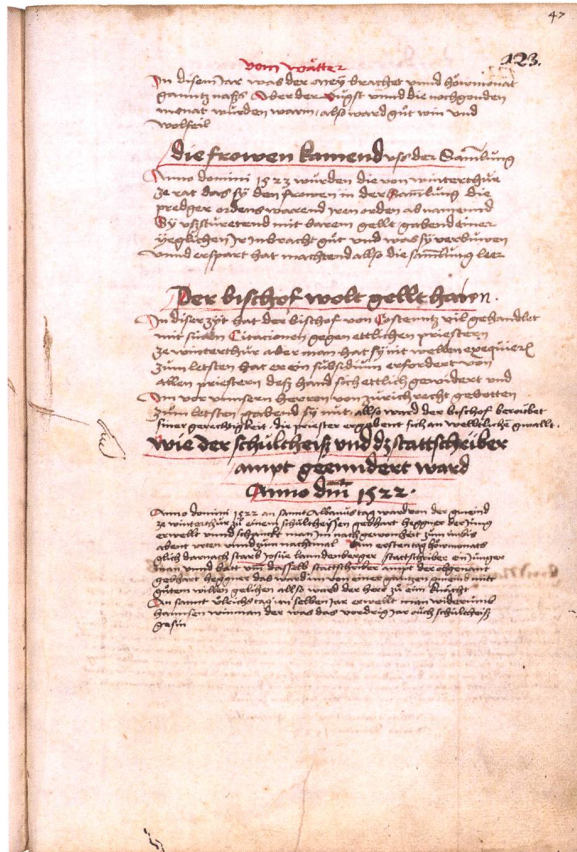 47
123.
vom wätter
In disem Jar was der mey brachet unnd höwmonat
ganntz naß Aber der Augst unnd die nochgenden
monat wurden warm, also ward gůt win und
wolfeil
die frowen kamend uß der Samlung
Anno domini 1523 wurden die von winterthur
ze rat das sy den frowen in der Samlung die
prediger ordens warend iren orden abnamend
Sy ußsturetend mit barem gellt gabend einer
yeglichen ir inbracht gůt und was sy
unnd erspart hat machtend allso die samlung leer
Der bischof wolt gellt haben.
In diser zyt hat der bischof von Costenntz vil gehandlet
mit sinen Citationen gegen ettlichen priestern
ze winterthur aber man hat sy nit wellen
zum letsten hat er ein subsidium erfordert von
allen priestern deß hand sich ettlich gewidert und
im vor unnsern herren von zürich recht gebotten
zum letsten gabend sy nüt, allso ward der bischof beroubet
siner gerechtigkeit, die priester ergabent sich an welltliche gwallt.
wie der schultheiß und dz stattschriber
ampt geenndert ward
Anno dm̄ 1522.
Anno domini 1522 an sannt Albanus tag ward von der gmeind
ze winterthur zů einem schultheissen gebhart hegner der jung
erwellt und schannckt man im nach gewonheit zum imbis
abent und zum nachtmal Am ersten tag höwmonats
glich darnach starb Josue lanndenberger stattschriber ein junger
man und batt umb dasselb stattschriber ampt der obgenant
gebhart hegner das ward im von einer gantzen gmeind mit
gůtem willen gelihen allso ward der herr zů ein knächt
An sannt ůlrichs tag im selben jar erwellt man widerumb
hannsen winman der was das vordrig jar ouch schultheiß
gesin